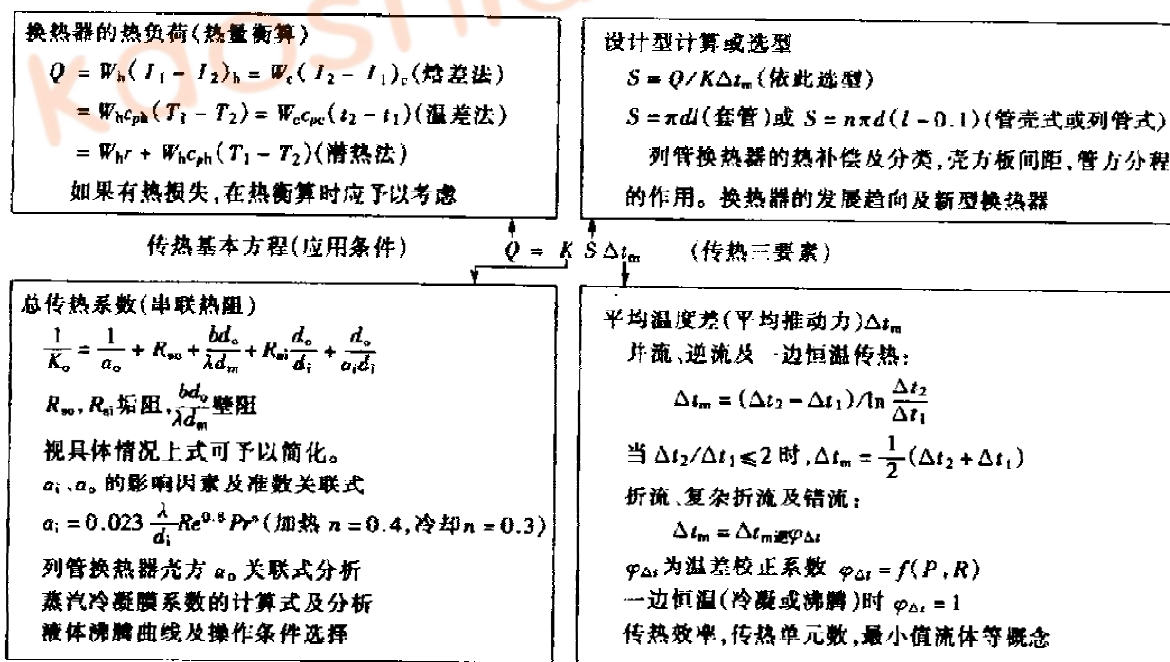 换热器的热负荷(热量衡算)
Q = W_h(I_1 - I_2)_h = W_c(I_2 - I_1)_c(焓差法)
= W_h c_ph(T_1 - T_2) = W_c c_pc(t_2 - t_1)(温差法)
= W_h r + W_h c_ph(T_1 - T_2)(潜热法)
如果有热损失,在热衡算时应予以考虑
设计型计算或选型
S = Q/KΔt_m(依此选型)
S = πdl(套管)或 S = nπd(l - 0.1)(管壳式或列管式)
列管换热器的热补偿及分类,壳方板间距,管方分程
的作用。换热器的发展趋向及新型换热器
传热基本方程(应用条件) Q = K S Δt_m (传热三要素)
总传热系数(串联热阻)
1/K_o = 1/α_o + R_so + bd_o/λd_m + R_si d_o/d_i + d_o/α_i d_i
R_so, R_si 垢阻, bd_o/λd_m 壁阻
视具体情况上式可予以简化。
α_i、α_o 的影响因素及准数关联式
α_i = 0.023 λ/d_i Re^0.8 Pr^n(加热 n = 0.4,冷却 n = 0.3)
列管换热器壳方 α_o 关联式分析
蒸汽冷凝膜系数的计算式及分析
液体沸腾曲线及操作条件选择
平均温度差(平均推动力)Δt_m
并流、逆流及一边恒温传热:
Δt_m = (Δt_2 - Δt_1)/ln Δt_2/Δt_1
当 Δt_2/Δt_1 ≤ 2 时, Δt_m = 1/2(Δt_2 + Δt_1)
折流、复杂折流及错流:
Δt_m = Δt_m逆 φ_Δt
φ_Δt 为温差校正系数 φ_Δt = f(P,R)
一边恒温(冷凝或沸腾)时 φ_Δt = 1
传热效率,传热单元数,最小值流体等概念